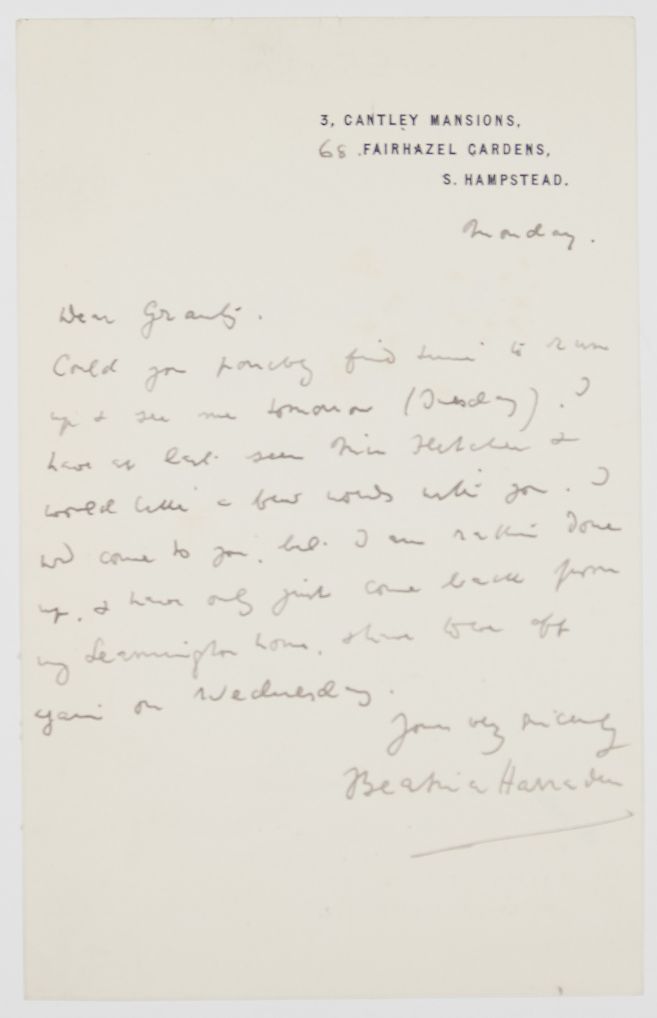 3, CANTLEY MANSIONS,
68 FAIRHAZEL GARDENS,
S. HAMPSTEAD.
Monday.
Dear
Could you possibly find time to run
up & see me tomorrow (Tuesday). I
have at last seen Miss Fletcher &
would like a few words with you. I
wd come to you, but I am rather done
up, & have only just come back from
my Leamington home, & have to be off
again on Wednesday.
Yours very sincerely
Beatrice Harraden